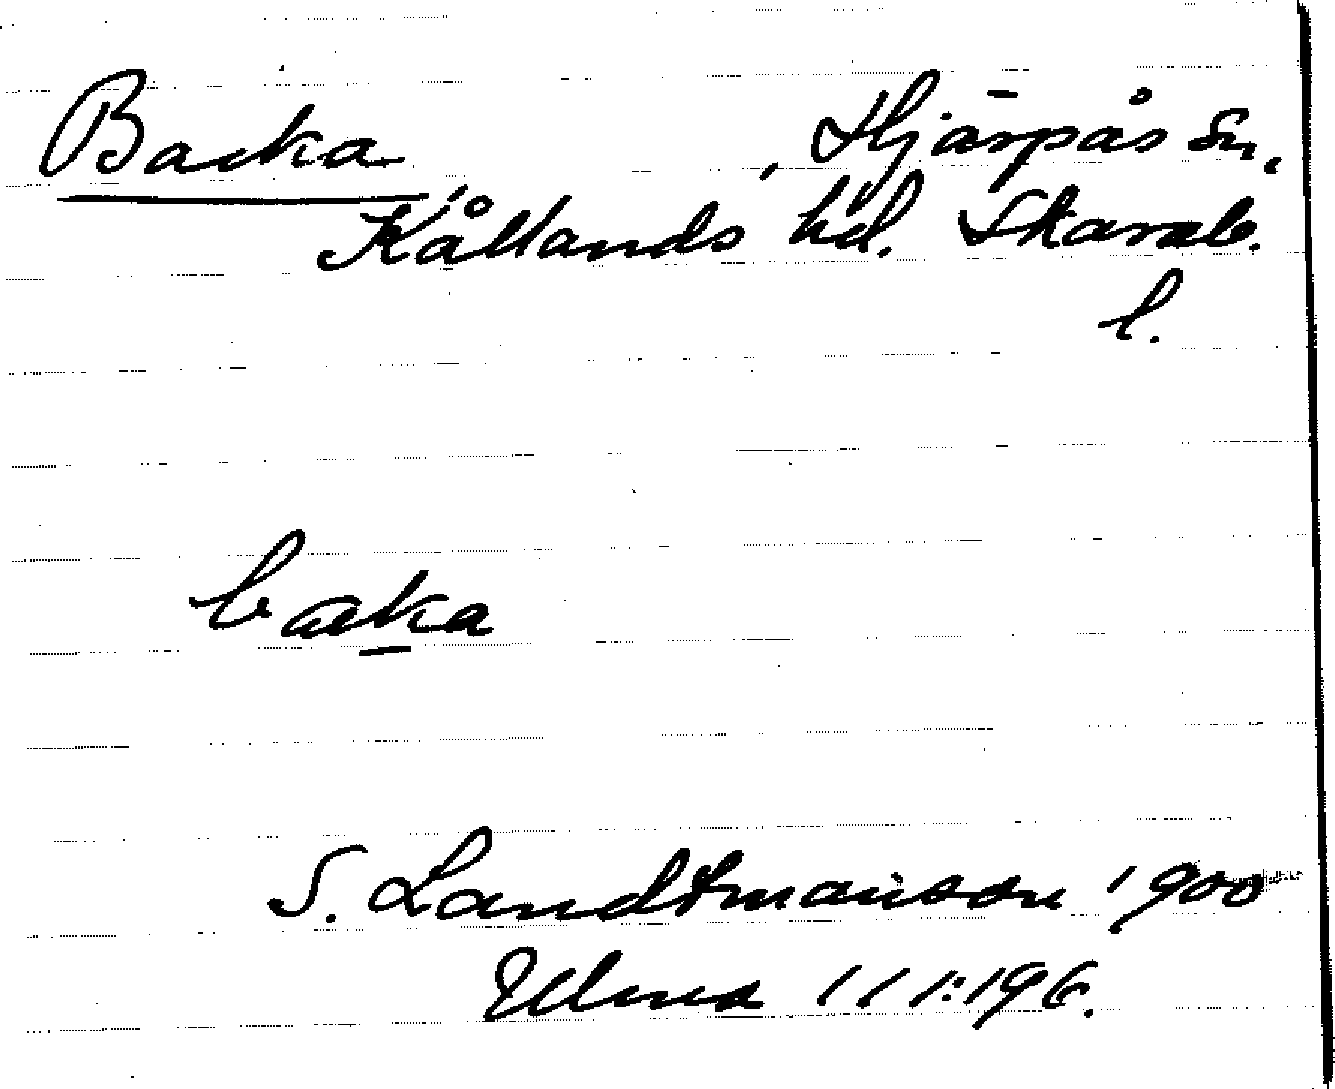 Backa, Härjpås sn,
Kållands hd. Skarab.
l.
baka
S. Landtmanson 1900
Ulma 111:196.